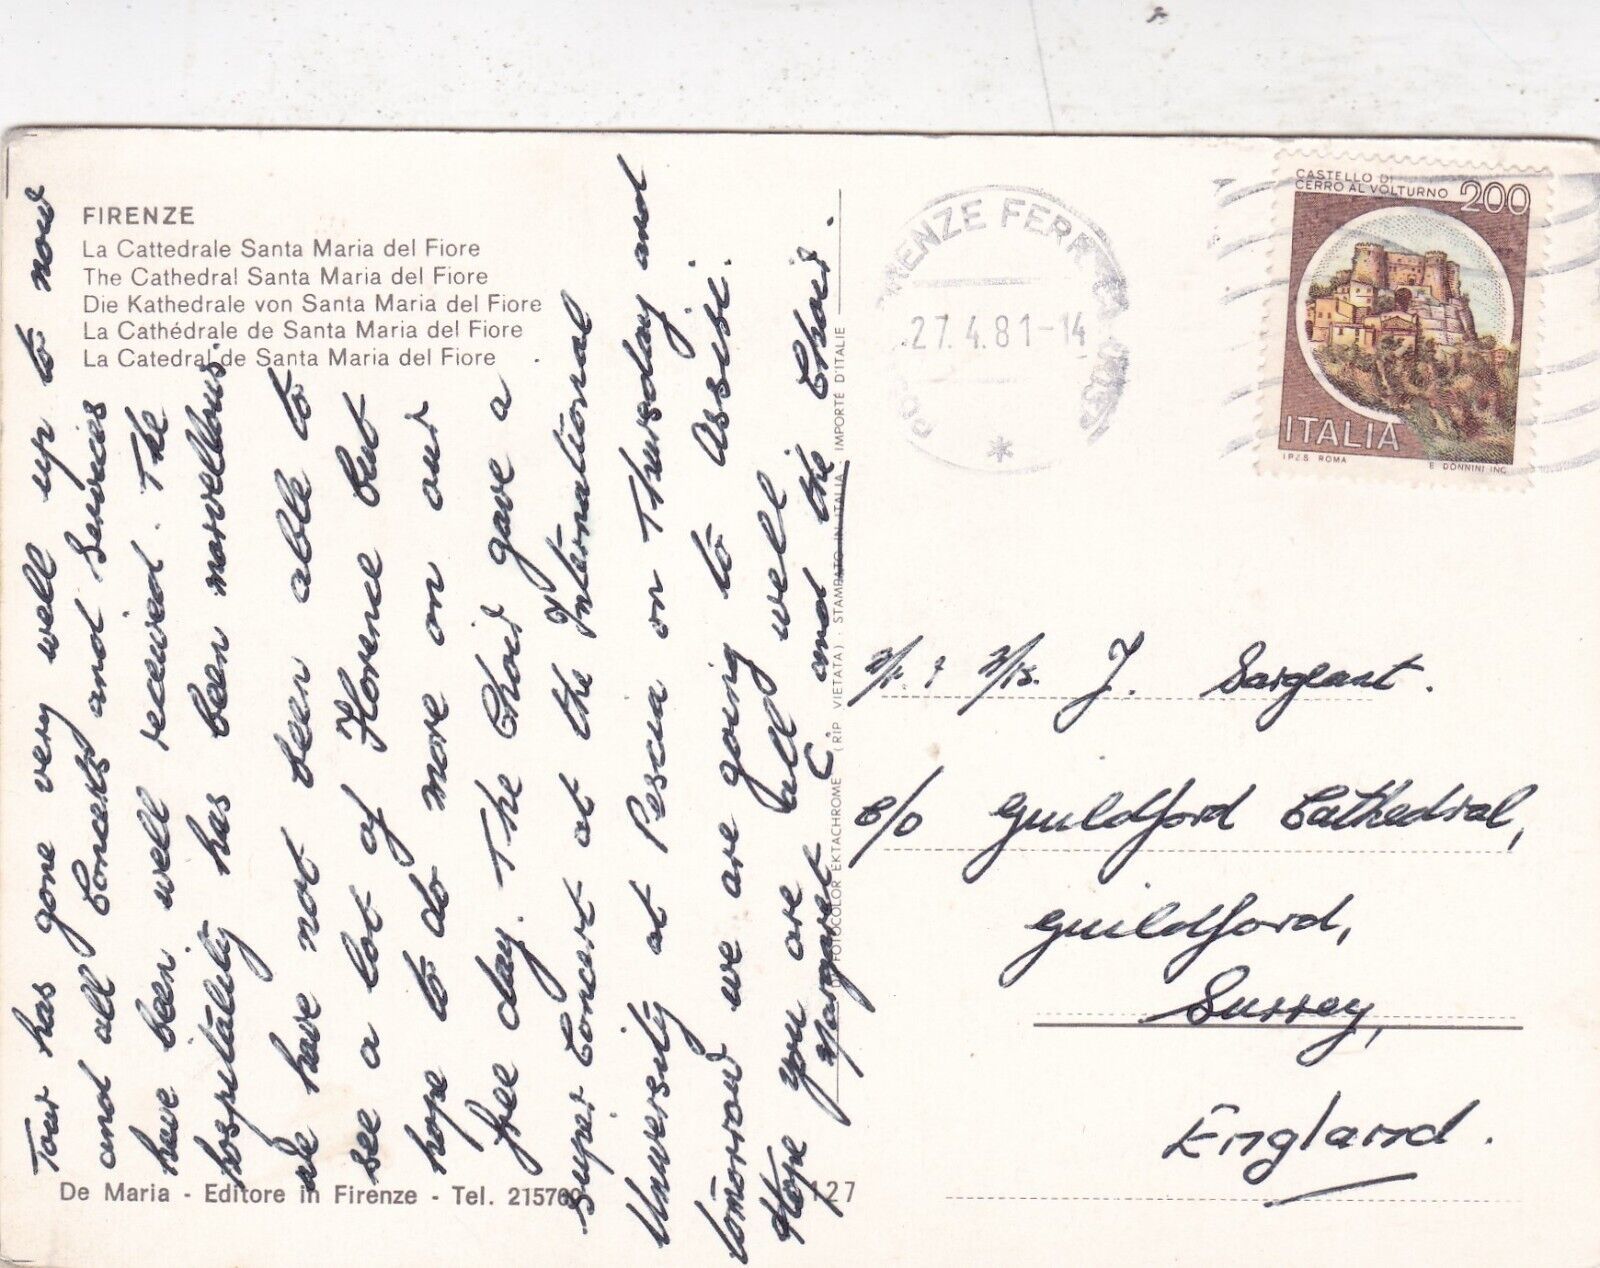 FIRENZE
La Cattedrale Santa Maria del Fiore
The Cathedral Santa Maria del Fiore
Die Kathedrale von Santa Maria del Fiore
La Cathédrale de Santa Maria del Fiore
La Catedral de Santa Maria del Fiore
Tour has gone very well up to now
and all Concerts and Services
have been well received. The
hospitality has been marvellous
we have not been able to
see a lot of Florence but
hope to do more on our
free day. The Choir gave a
super Concert at the International
University at Pescia on Thursday and
tomorrow we are going to Assisi.
Hope you are all well
Margaret C. and the Choir.
De Maria - Editore in Firenze - Tel. 21576
127
FOTOCOLOR EKTACHROME (RIP. VIETATA) . STAMPATO IN ITALIA - IMPORTÉ D'ITALIE
RENZE FERR
27.4.81-14
CASTELLO DI
CERRO AL VOLTURNO 200
ITALIA
I.P.Z.S. ROMA E. DONNINI INC.
Mr. & Mrs. J. Sargeant.
c/o Guildford Cathedral,
Guildford,
Surrey,
England.